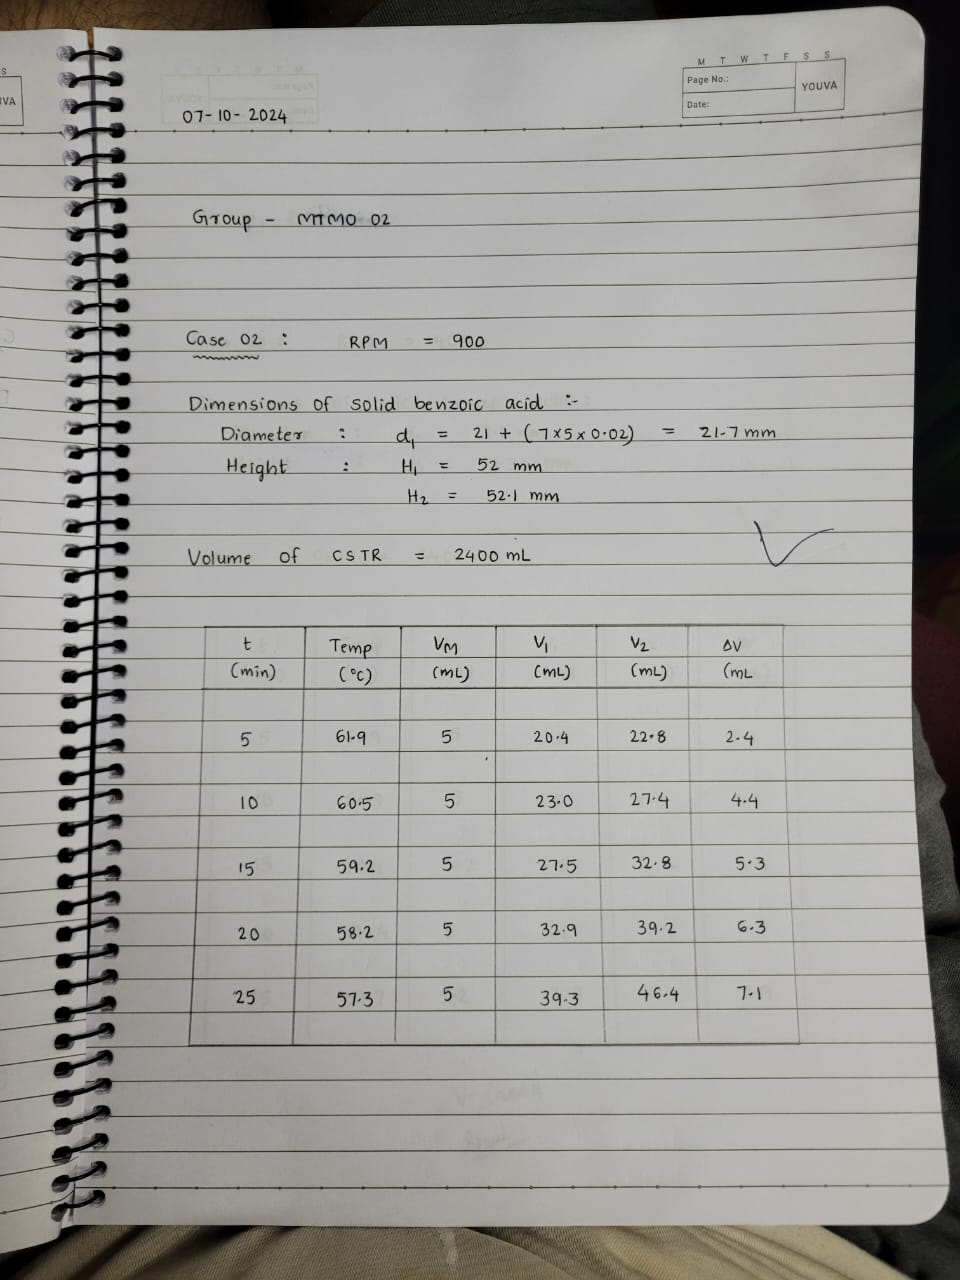 M T W T F S S
Page No.:
YOUVA
Date:
07-10-2024
Group - MTMO 02
Case 02 : RPM = 900
Dimensions of solid benzoic acid :-
Diameter : d₁ = 21 + (7x5x0.02) = 21.7 mm
Height : H₁ = 52 mm
H₂ = 52.1 mm
Volume of CSTR = 2400 mL
t Temp VM V₁ V₂ ΔV
(min) (°C) (mL) (mL) (mL) (mL
5 61.9 5 20.4 22.8 2.4
10 60.5 5 23.0 27.4 4.4
15 59.2 5 27.5 32.8 5.3
20 58.2 5 32.9 39.2 6.3
25 57.3 5 39.3 46.4 7.1